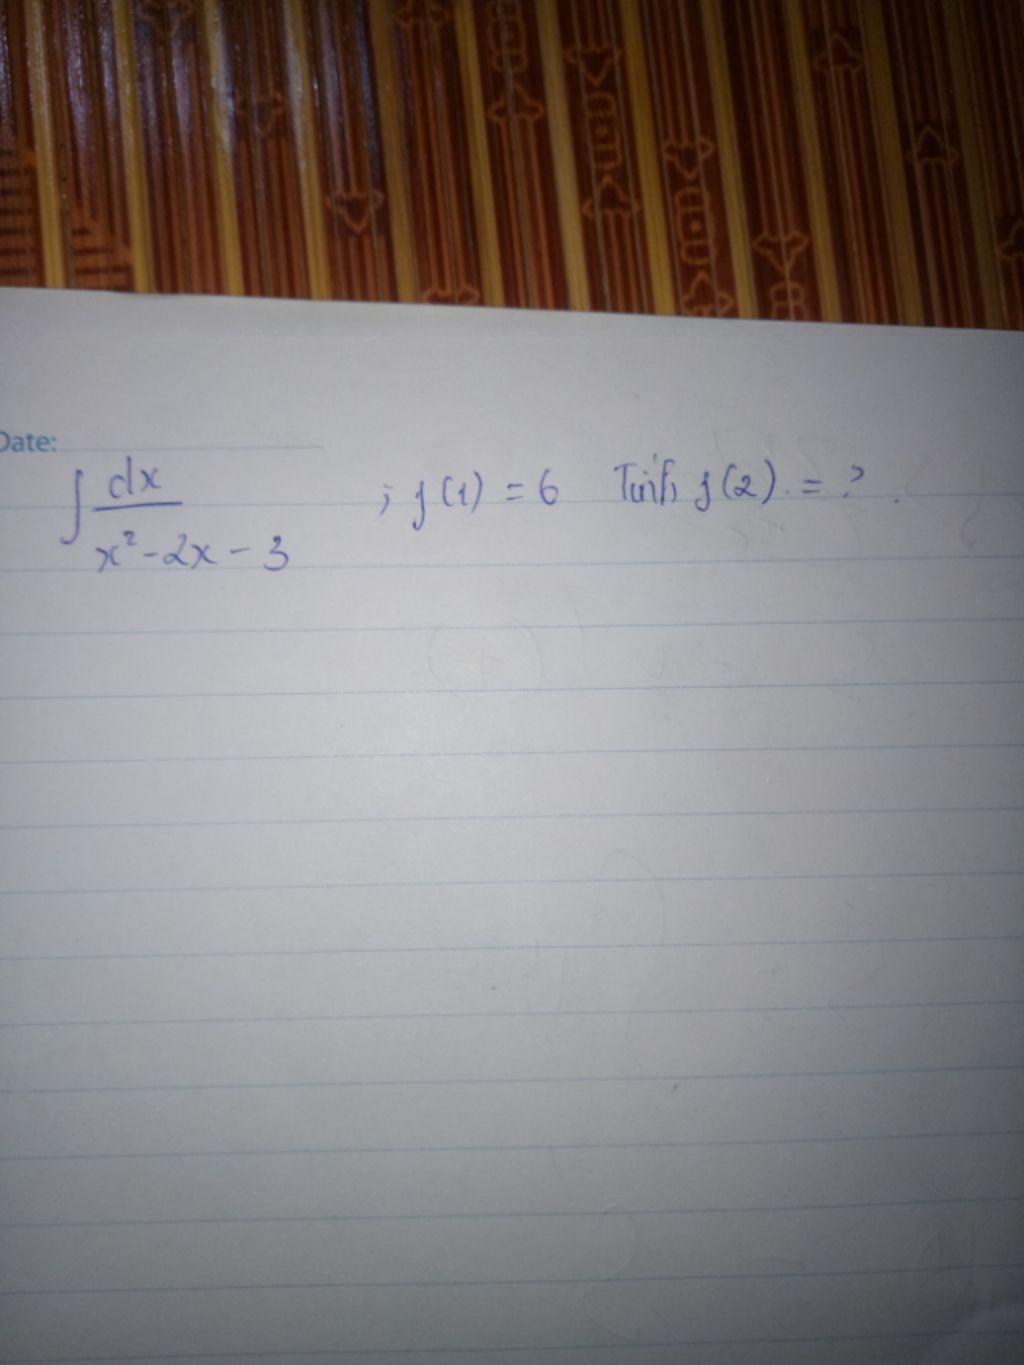 Date:
∫ dx / x² - 2x - 3 ; f(1) = 6 Tính f(2) = ?